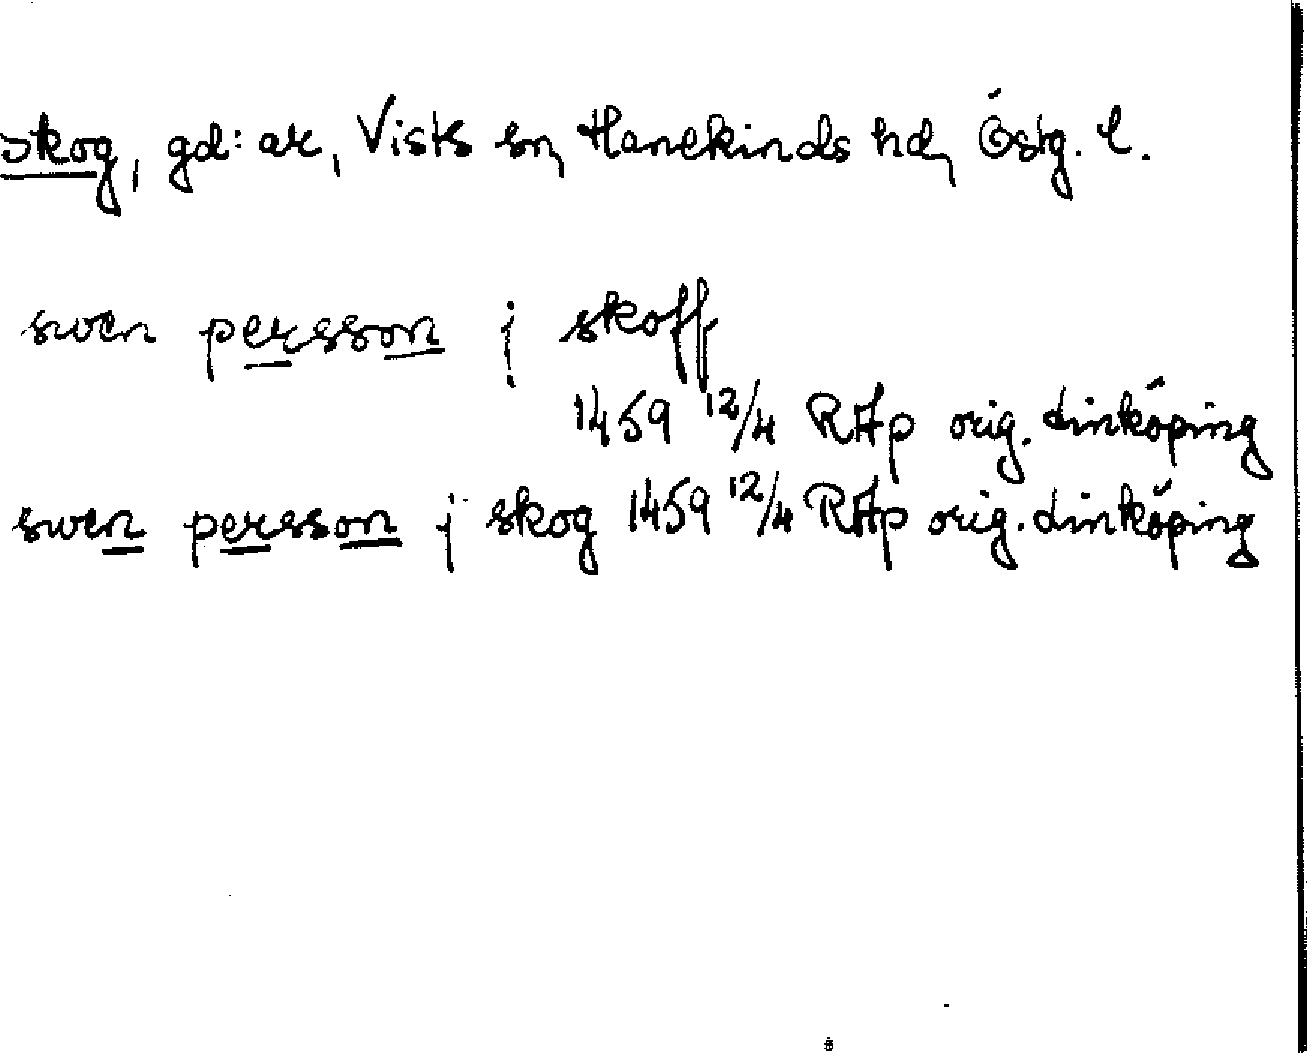 skog, gd: ar, Vists sn, Hanekinds hd, Östg. l.
swen persson j skoff
1459 12/4 RAp orig. Linköping
swen persson j skog 1459 12/4 RAp orig. Linköping